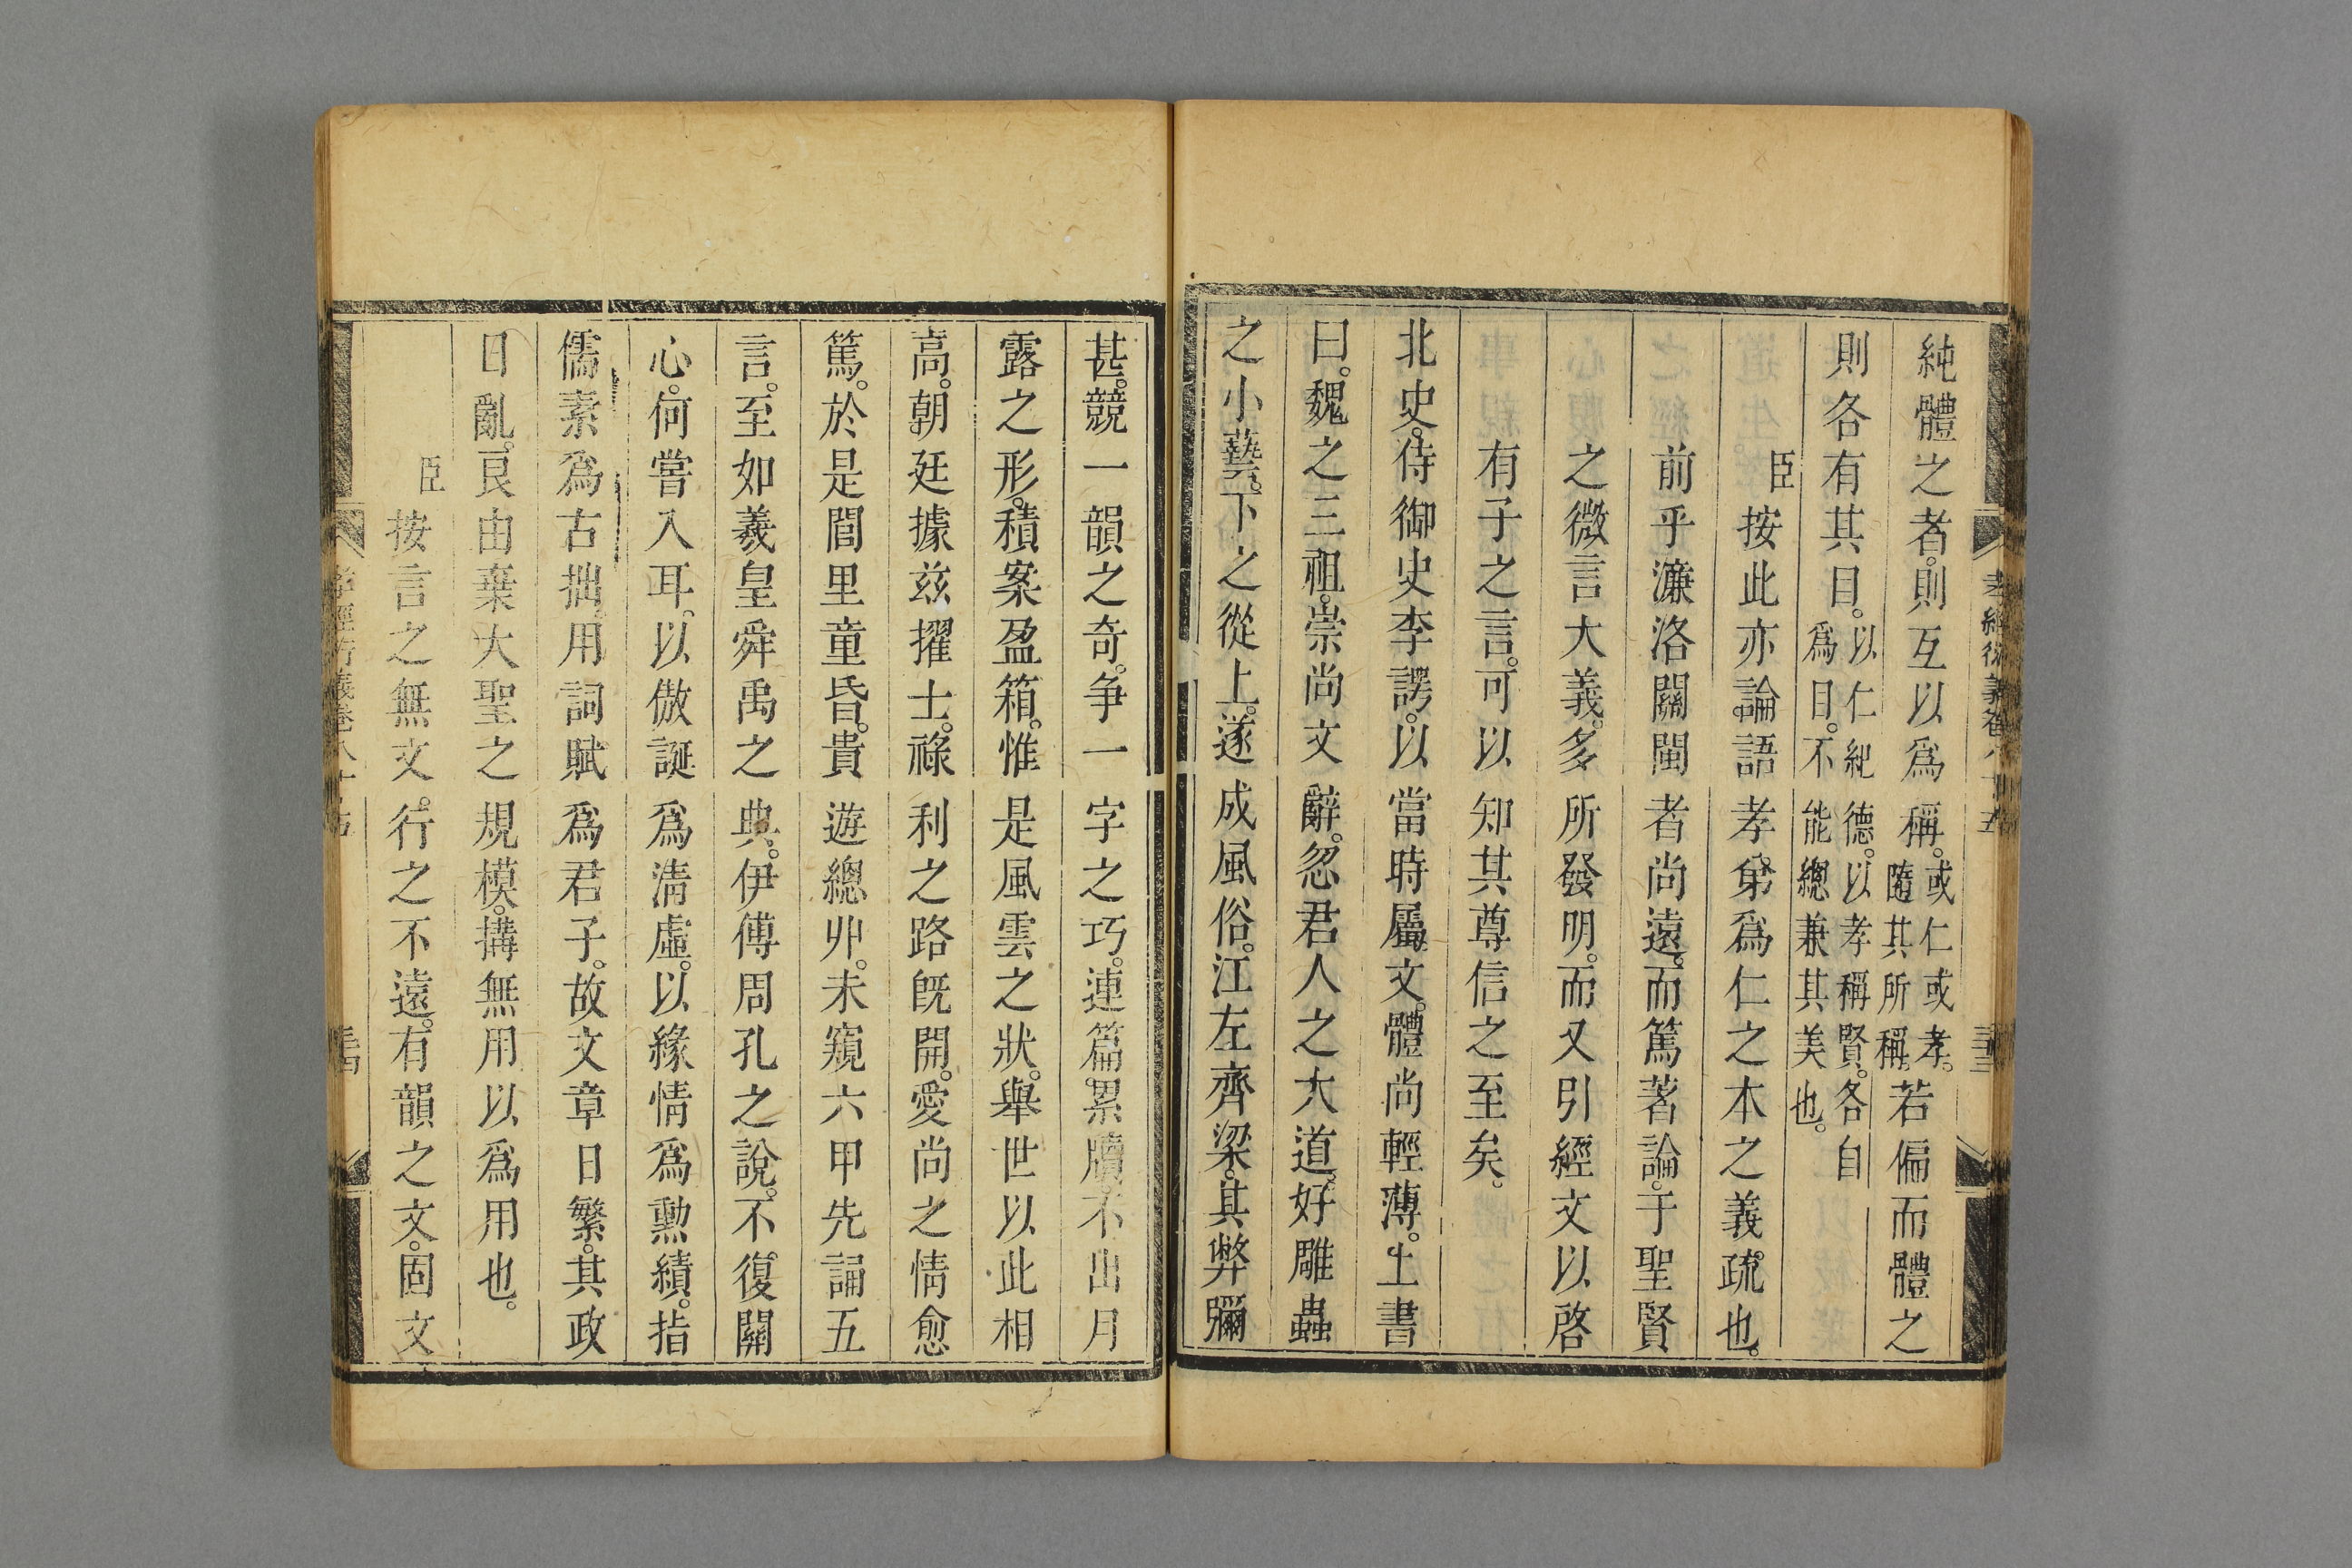 孝經衍義卷八十五
三十三
純體之者。則互以爲稱。或仁或孝。隨其所稱。若偏而體之
則各有其目。以仁紀德。以孝稱賢。各自爲目。不能總兼其美也。
臣按此亦論語孝弟爲仁之本之義疏也。
前乎濂洛關閩者尚遠。而篤著論。于聖賢
之微言大義。多所發明。而又引經文以啓
有子之言。可以知其尊信之至矣。
北史。侍御史李諤。以當時屬文。體尚輕薄。上書
曰。魏之三祖。崇尚文辭。忽君人之大道。好雕蟲
之小藝。下之從上。遂成風俗。江左齊梁。其弊彌
甚。競一韻之奇。爭一字之巧。連篇累牘。不出月
露之形。積案盈箱。惟是風雲之狀。舉世以此相
高。朝廷據兹擢士。祿利之路旣開。愛尚之情愈
篤。於是閭里童昏。貴遊總丱。未窺六甲先誦五
言。至如羲皇舜禹之典。伊傅周孔之說。不復關
心。何嘗入耳。以傲誕爲淸虛。以緣情爲勲績。指
儒素爲古拙。用詞賦爲君子。故文章日繁。其政
日亂。良由棄大聖之規模。搆無用以爲用也。
臣按言之無文。行之不遠。有韻之文。固文
孝經衍義卷八十五
三十四